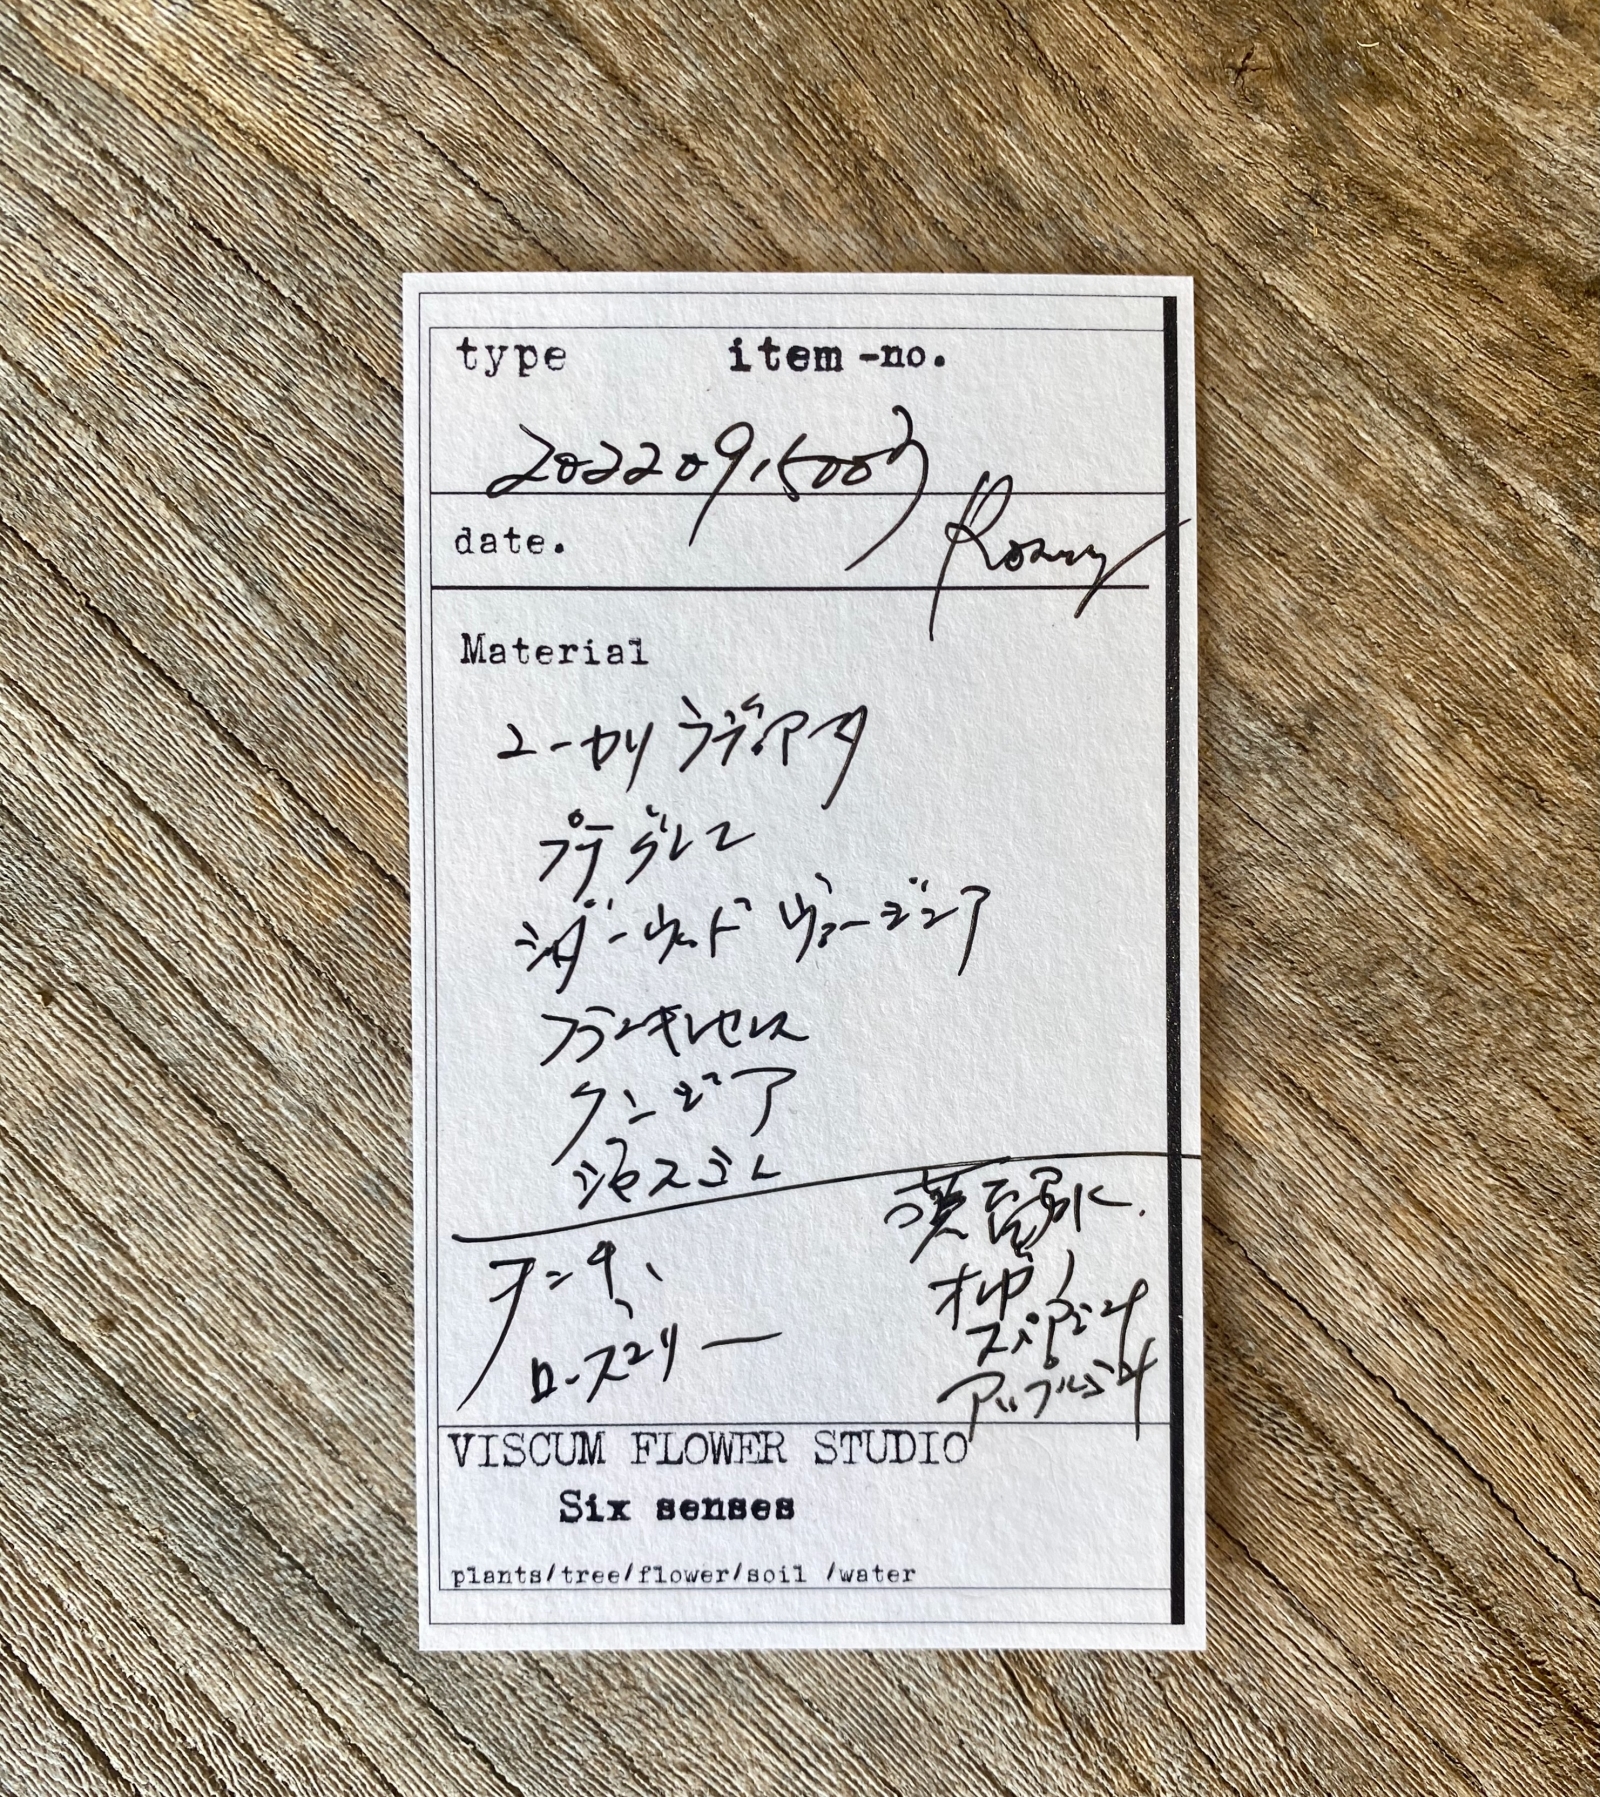 type item-no.
date.
Material
ユーカリ ラディアタ
プチグレン
シダーウッド ヴァージニア
フランキンセンス
クンジア
ジャスミン
ローズマリー
スペアミント
アップルミント
VISCUM FLOWER STUDIO
Six senses
plants/tree/flower/soil /water